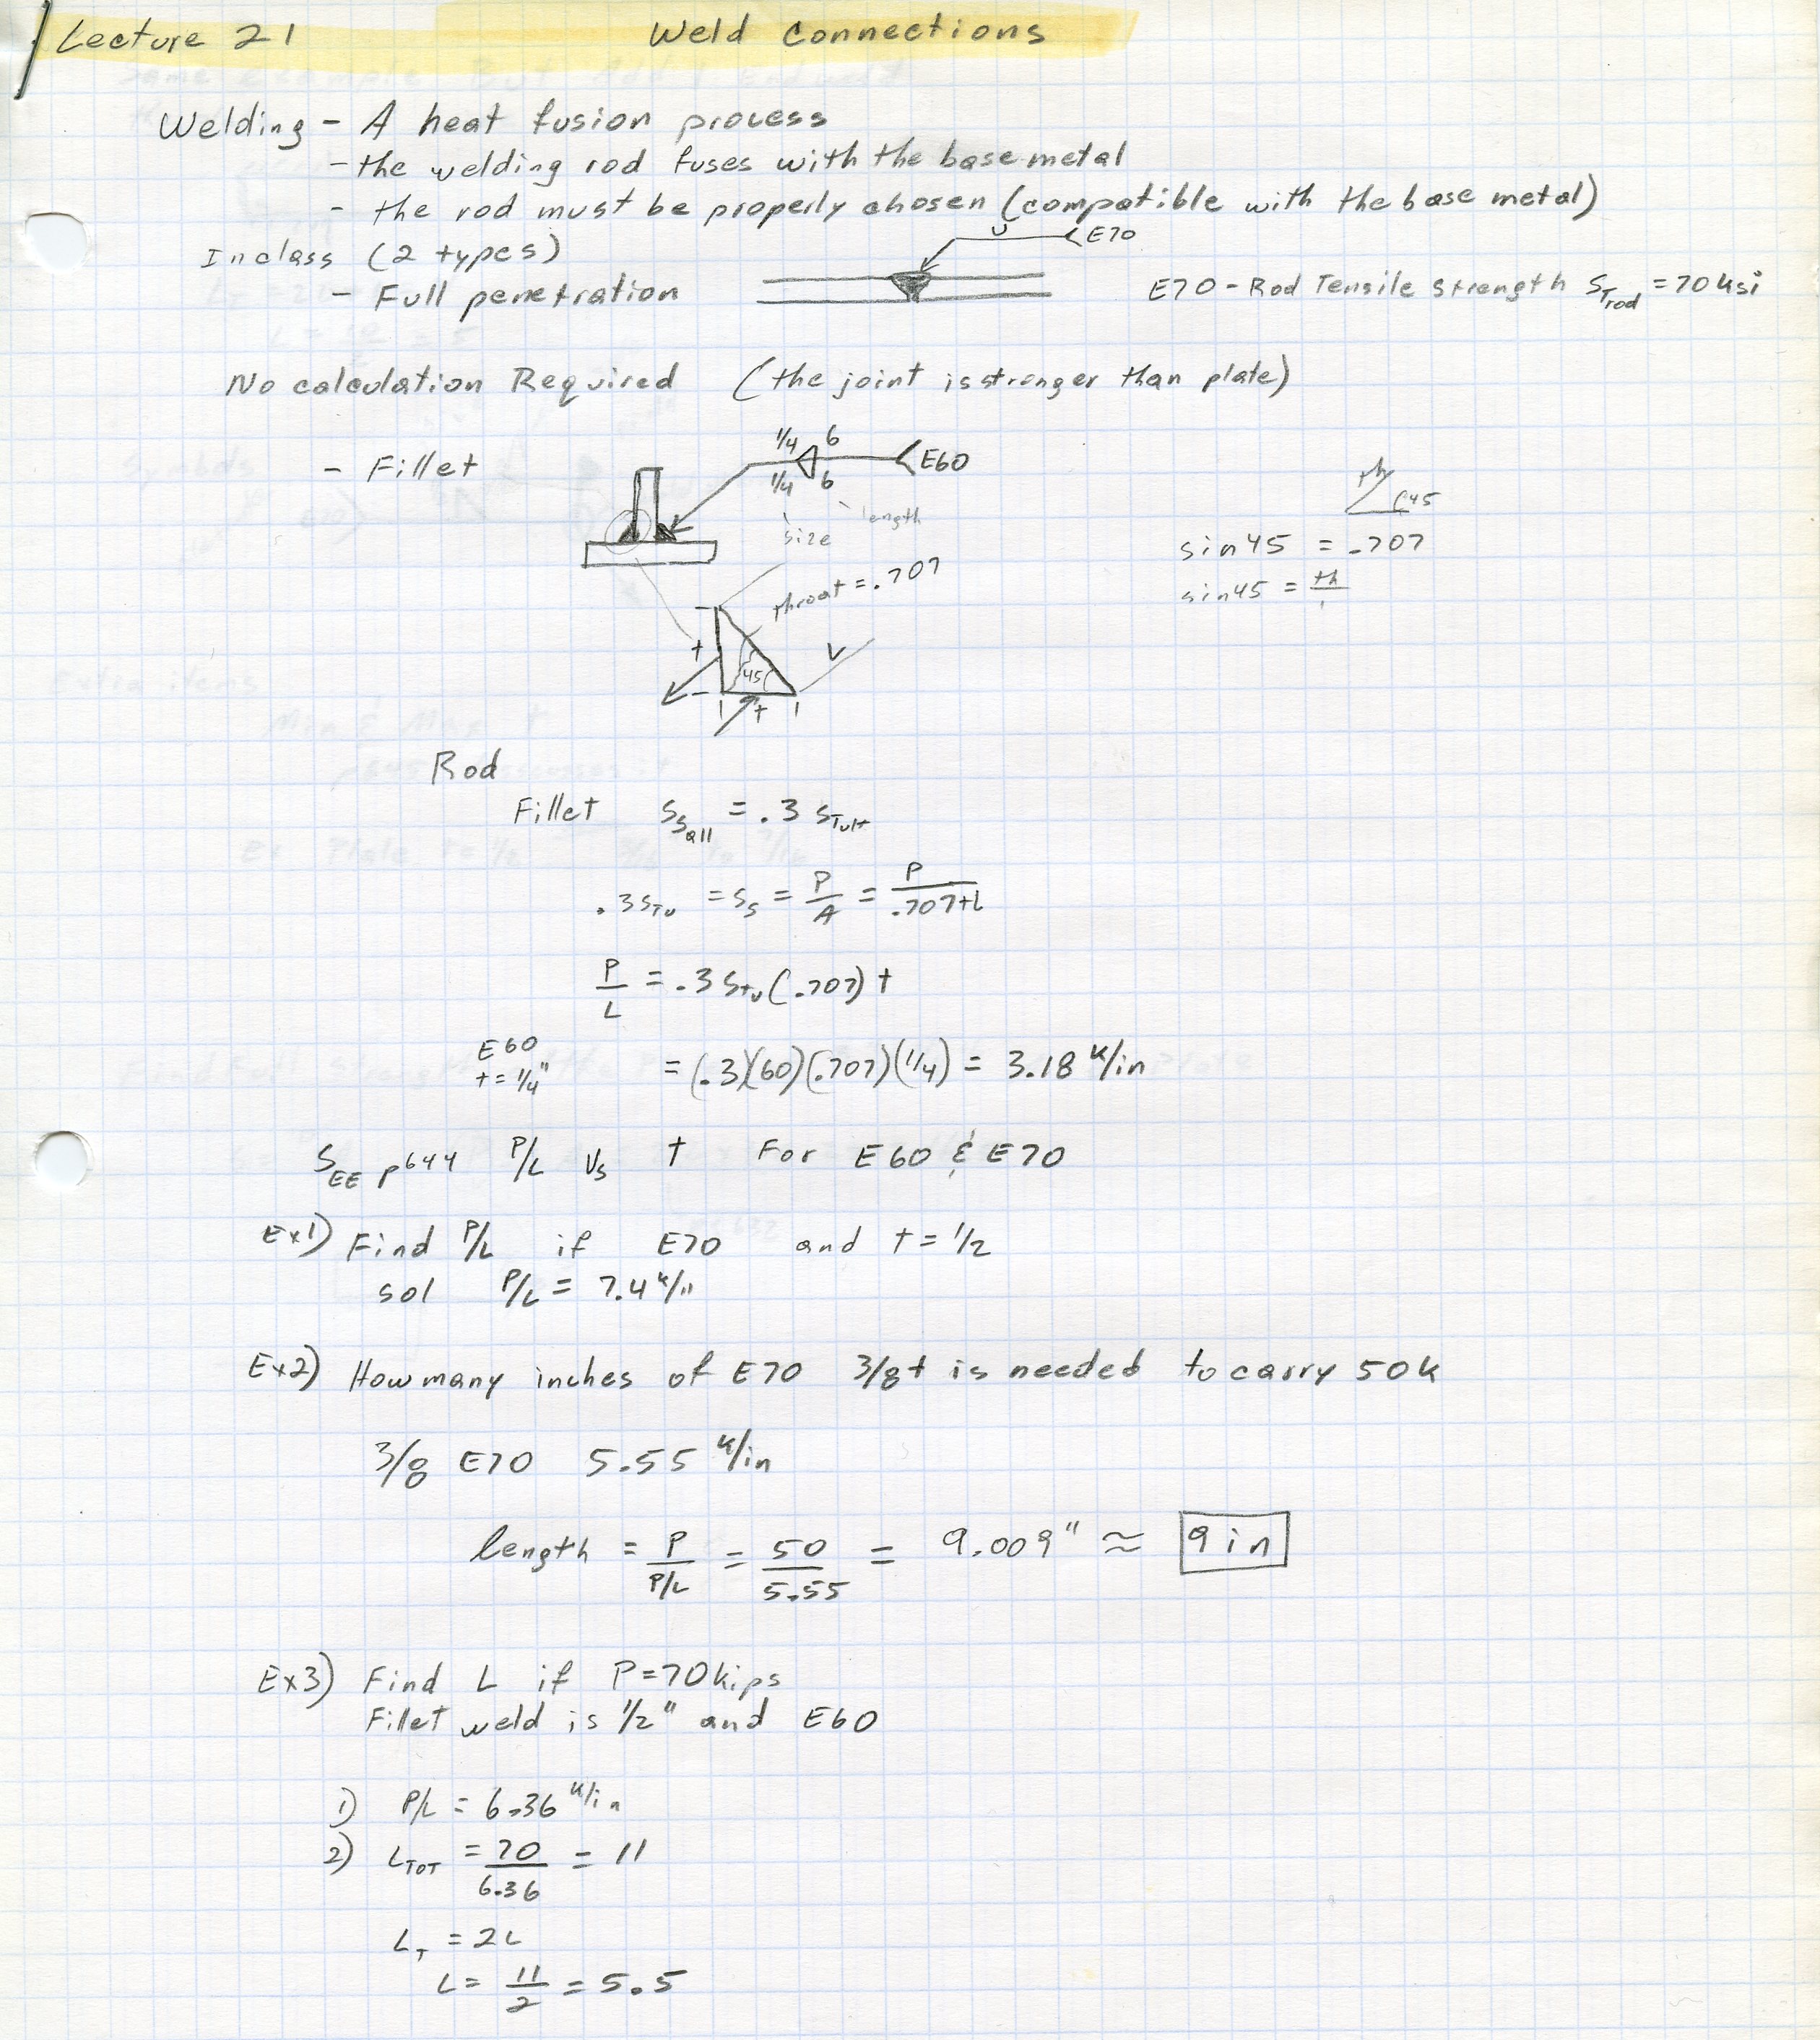 Lecture 21 Weld Connections
Welding - A heat fusion process
- the welding rod fuses with the base metal
- the rod must be properly chosen (compatible with the base metal)
In class (2 types)
E70
- Full penetration
E70 - Rod Tensile Strength S_Trod = 70 ksi
No calculation Required (the joint is stronger than plate)
- Fillet
1/4 6 E60
1/4 6
size length
th 45
sin 45 = .707
sin 45 = th/
throat = .707
t V
45
t
Rod
Fillet S_Sall = .3 S_Tult
.3 S_Tu = S_S = P/A = P/.707tL
P/L = .3 S_tu (.707) t
E60
t = 1/4"
= (.3)(60)(.707)(1/4) = 3.18 k/in
SEE p644 P/L Vs t For E60 & E70
Ex1) Find P/L if E70 and t = 1/2
sol P/L = 7.4 k/"
Ex2) How many inches of E70 3/8 t is needed to carry 50k
3/8 E70 5.55 k/in
length = P/(P/L) = 50/5.55 = 9.009" ≈ 9 in
Ex3) Find L if P = 70 kips
Fillet weld is 1/2" and E60
1) P/L = 6.36 k/in
2) L_TOT = 70/6.36 = 11
L_T = 2L
L = 11/2 = 5.5